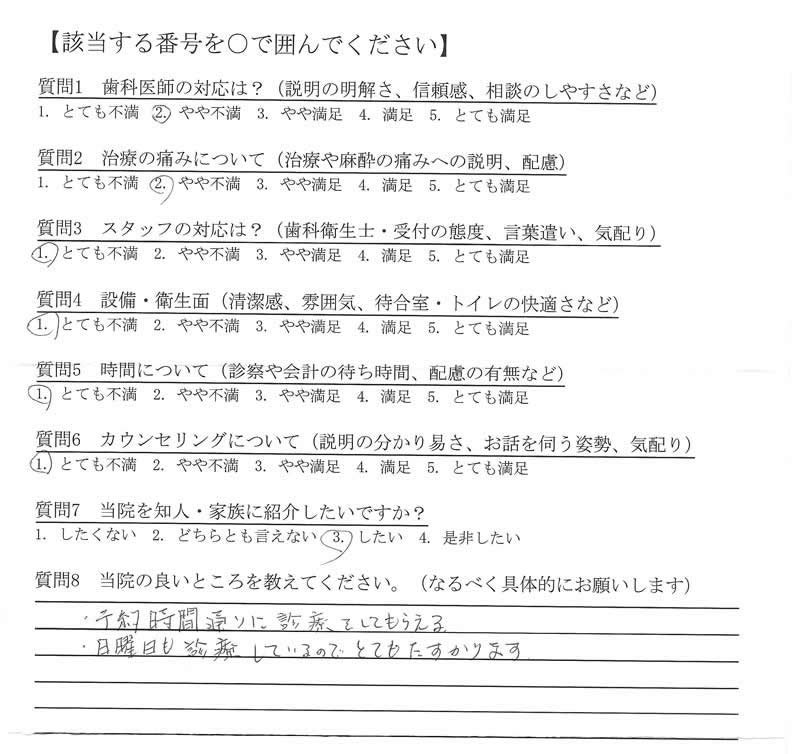 【該当する番号を○で囲んでください】
質問1 歯科医師の対応は？（説明の明解さ、信頼感、相談のしやすさなど）
1. とても不満 2. やや不満 3. やや満足 4. 満足 5. とても満足
質問2 治療の痛みについて（治療や麻酔の痛みへの説明、配慮）
1. とても不満 2. やや不満 3. やや満足 4. 満足 5. とても満足
質問3 スタッフの対応は？（歯科衛生士・受付の態度、言葉遣い、気配り）
1. とても不満 2. やや不満 3. やや満足 4. 満足 5. とても満足
質問4 設備・衛生面（清潔感、雰囲気、待合室・トイレの快適さなど）
1. とても不満 2. やや満足 3. やや満足 4. 満足 5. とても満足
質問5 時間について（診察や会計の待ち時間、配慮の有無など）
1. とても不満 2. やや不満 3. やや満足 4. 満足 5. とても満足
質問6 カウンセリングについて（説明の分かり易さ、お話を伺う姿勢、気配り）
1. とても不満 2. やや不満 3. やや満足 4. 満足 5. とても満足
質問7 当院を知人・家族に紹介したいですか？
1. したくない 2. どちらとも言えない 3. したい 4. 是非したい
質問8 当院の良いところを教えてください。（なるべく具体的にお願いします）
・予約時間通りに診療をしてもらえる
・日曜日も診療しているのでとてもたすかります